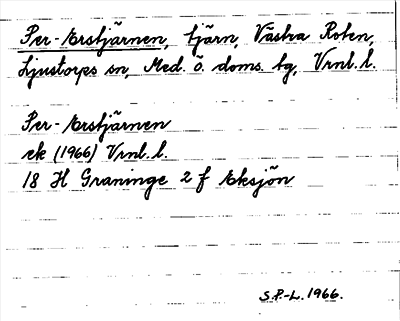 Per-Erstjärnen, tjärn, Västra Roten,
Ljustorps sn, Med. ö. doms. tg, Vrnl. l.
Per-Erstjärnen
ek (1966) Vrnl. l.
18 H Graninge 2 f Eksjön
S.P.-L. 1966.